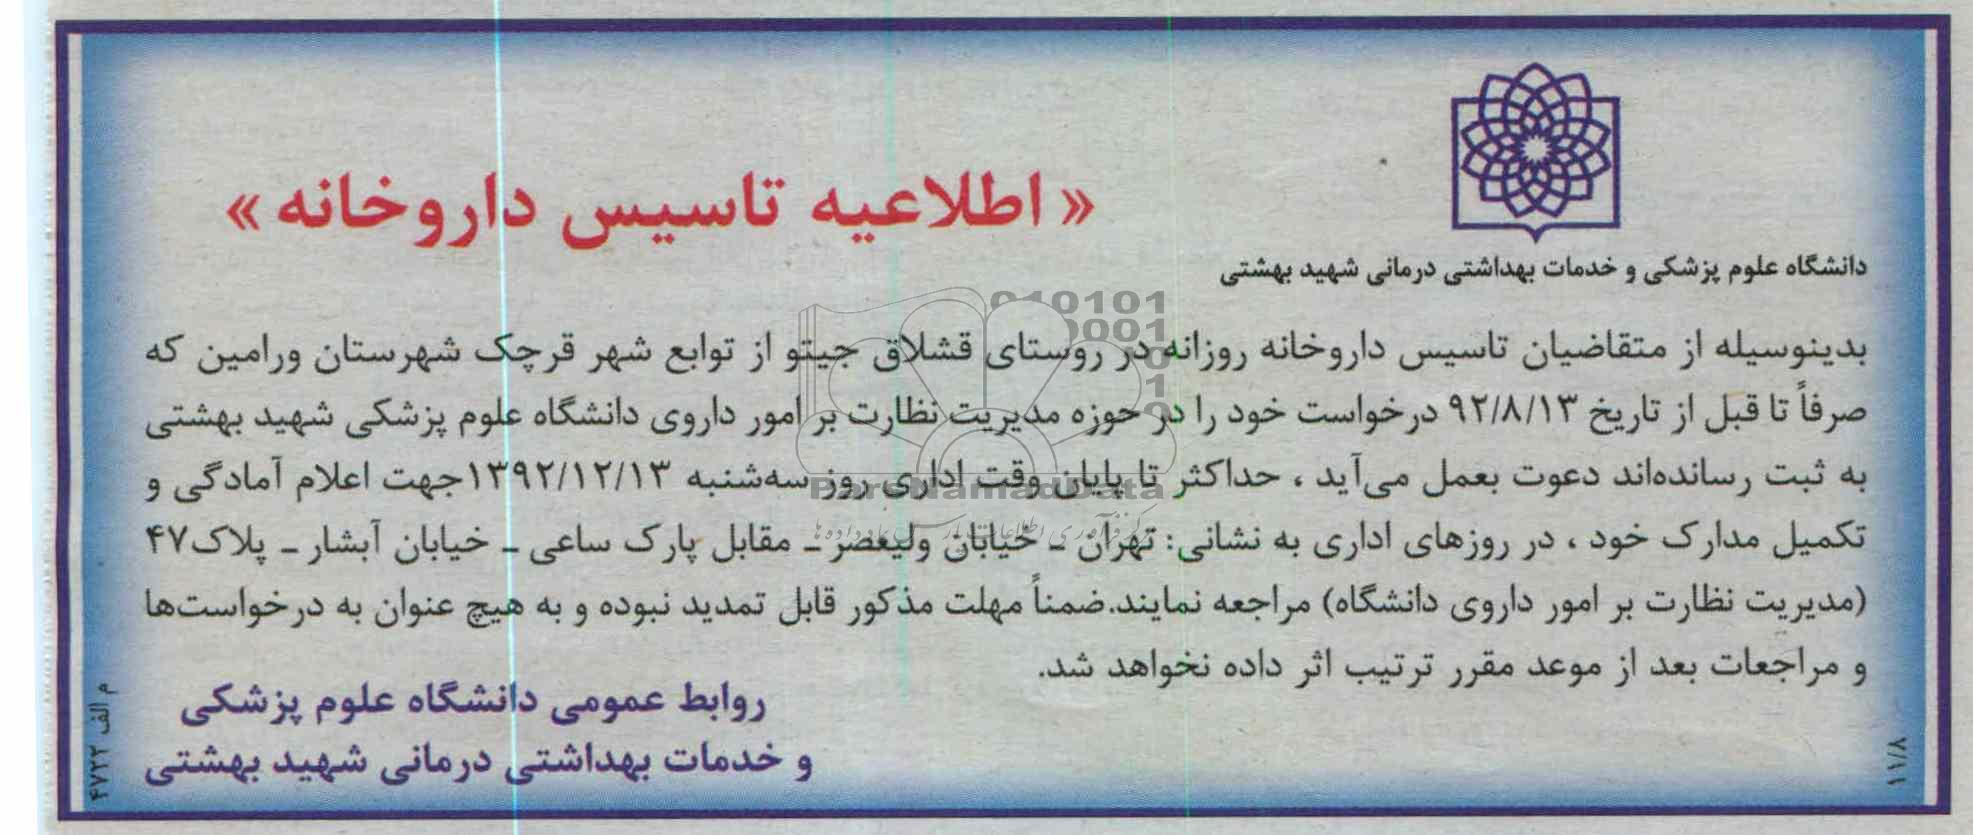 « اطلاعیه تاسیس داروخانه »
دانشگاه علوم پزشکی و خدمات بهداشتی درمانی شهید بهشتی
بدینوسیله از متقاضیان تاسیس داروخانه روزانه در روستای قشلاق جیتو از توابع شهر قرچک شهرستان ورامین که
صرفاً تا قبل از تاریخ ۹۲/۸/۱۳ درخواست خود را در حوزه مدیریت نظارت بر امور داروی دانشگاه علوم پزشکی شهید بهشتی
به ثبت رسانده‌اند دعوت بعمل می‌آید ، حداکثر تا پایان وقت اداری روز سه‌شنبه ۱۳۹۲/۱۲/۱۳ جهت اعلام آمادگی و
تکمیل مدارک خود ، در روزهای اداری به نشانی: تهران ـ خیابان ولیعصر ـ مقابل پارک ساعی ـ خیابان آبشار ـ پلاک ۴۷
(مدیریت نظارت بر امور داروی دانشگاه) مراجعه نمایند.ضمناً مهلت مذکور قابل تمدید نبوده و به هیچ عنوان به درخواست‌ها
و مراجعات بعد از موعد مقرر ترتیب اثر داده نخواهد شد.
روابط عمومی دانشگاه علوم پزشکی
و خدمات بهداشتی درمانی شهید بهشتی
م الف ۴۷۲۳
۱۱/۸
ParsNamadData